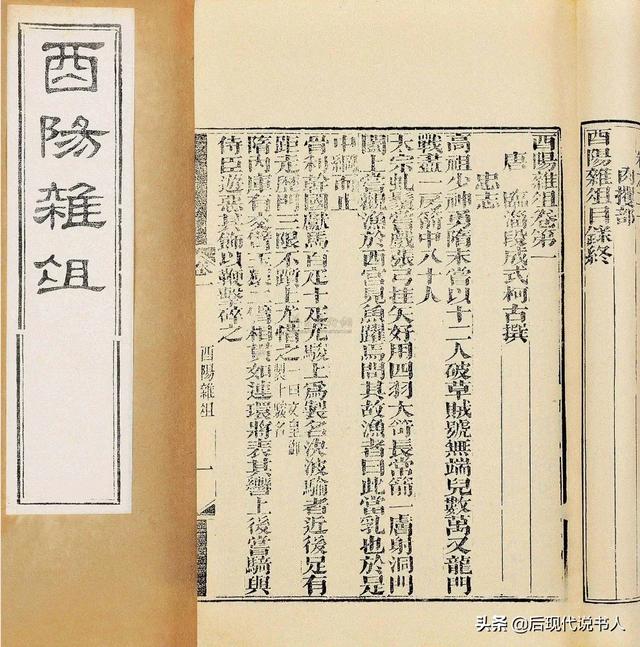 酉陽雜俎
肉攫部
酉陽雜俎目錄終
酉陽雜俎卷第一
唐 臨淄段成式柯古撰
忠志
高祖少神勇隋末嘗以十二人破草賊號無端兒數萬又龍門
戰盡一房箭中八十人
太宗虬鬚嘗戲張弓挂矢好用四羽大笴長常箭一膚射洞門
闔上嘗觀漁於西宮見魚躍焉問其故漁者曰此當乳也於是
中網而止
骨利幹國獻馬百疋十疋尤駿上爲製名決波騟者近後足有
距走歷門三限不躓上尤惜之一曰文皇御製十驥名
隋內庫有交臂玉猨二臂相貫如連環將表其轡上後嘗騎與
侍臣遊惡其飾以鞭擊碎之
酉陽雜俎 一
头条 @后现代说书人